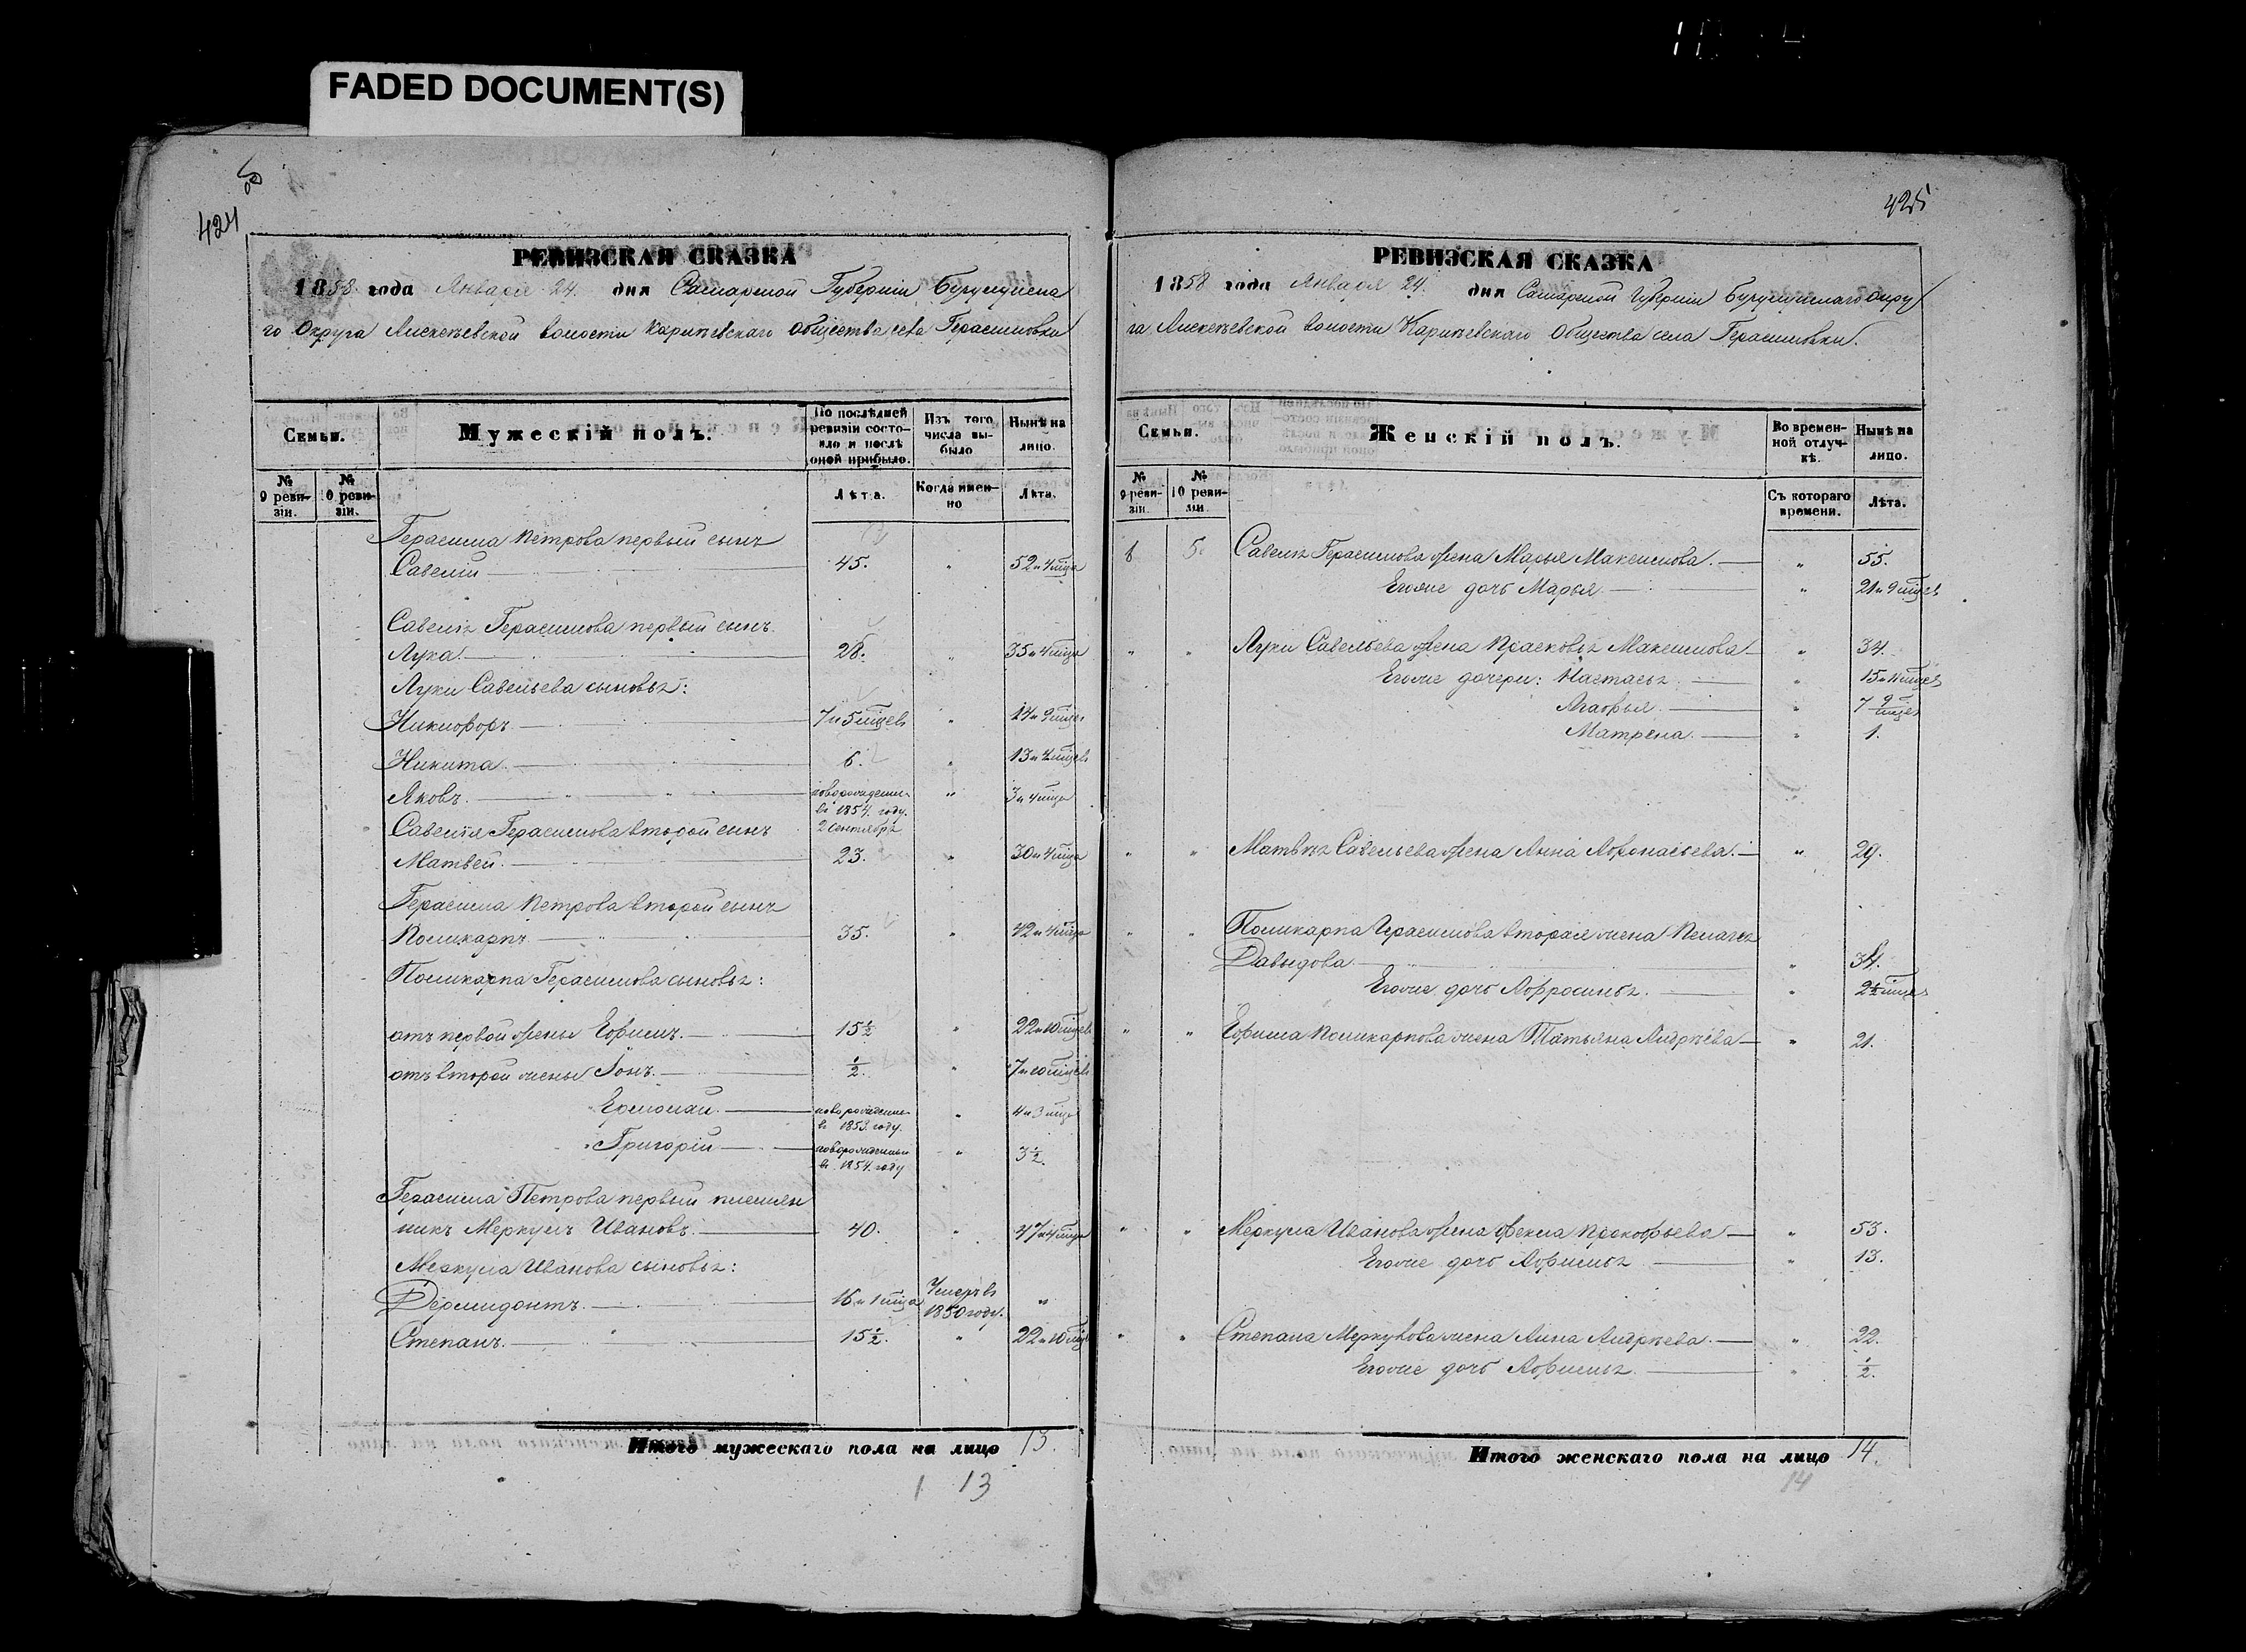 FADED DOCUMENT(S)
424
РЕВИЗСКАЯ СКАЗКА
1858 года Января 24. дня Самарской Губерніи Бугульмина
го Округа Аискеевской волости Каріевскаго общества села Герасимовки
Семьи.
Мужескій полъ.
По послѣдней ревизіи состояло и послѣ оной прибыло.
Изъ того числа выбыло
Нынѣ на лицо.
№ 9 ревизіи.
№ 10 ревизіи.
Лѣта.
Когда именно
Лѣта.
Герасима Петрова первый сынъ
Савелій 45. " 52 и 4 мѣца
Савелія Герасимова первый сынъ
Лука. 28. " 35 и 4 мѣца
Луки Савельева сыновья:
Никифоръ 7 и 5 мѣцевъ " 14 и 9 мѣцев
Никита. 6. " 13 и 4 мѣцевъ
Яковъ. новорожденн. въ 1854. году. 2 сентября " 3 и 4 мѣца
Савелія Герасимова второй сынъ
Матвей. 23. " 30 и 4 мѣца
Герасима Петрова второй сынъ
Поликарпъ 35. " 42 и 4 мѣца
Поликарпа Герасимова сыновья:
отъ первой жены Ефимъ. 15 1/2 " 22 и 10 мѣцевъ
отъ второй жены Іонъ. 1/2. " 7 и 10 мѣцевъ
Ермолай. новорожденн. въ 1853. году. " 4 и 3 мѣца
Григорій новорожденный въ 1854. году " 3 1/2.
Герасима Петрова первый племян
никъ Меркулъ Ивановъ. 40. " 47 и 4 мѣца
Меркула Иванова сыновья:
Дермидонтъ. 16 и 1 мѣца Умеръ въ 1850 году. "
Степанъ. 15 1/2. " 22 и 10 мѣцев
Итого мужескаго пола на лицо 13.
1 13
425
РЕВИЗСКАЯ СКАЗКА
1858 года Января 24. дня Самарской Губерніи Бугульминскаго Окру
га Аискеевской волости Каріевскаго Общества села Герасимовки.
Семьи.
Женскій полъ.
Во временной отлучкѣ.
Нынѣ на лицо.
№ 9 ревизіи.
№ 10 ревизіи.
Съ котораго времени.
Лѣта.
5. Савелія Герасимова жена Марья Максимова. " 55.
Егоже дочь Марья " 21 и 9 мѣцевъ
" " Луки Савельева жена Прасковья Максимова " 34.
Егоже дочери: Настасья " 15 и 11 мѣцевъ
Агафья. " 7 9 мѣцев
Матрена. " 1.
" " Матвѣя Савельева жена Анна Афонасьева. " 29.
" " Поликарпа Герасимова вторая жена Пелагея
Давыдова " 34.
Егоже дочь Афросинья. " 2 1/2 мѣцев
" " Ефима Поликарпова жена Татьяна Андрѣева " 21.
" " Меркула Иванова жена Фекла Прокофьева " 53.
Егоже дочь Афимья " 13.
" " Степана Меркулова жена Анна Андрѣева. " 22.
Егоже дочь Афимья " 1/2.
Итого женскаго пола на лицо 14.
14